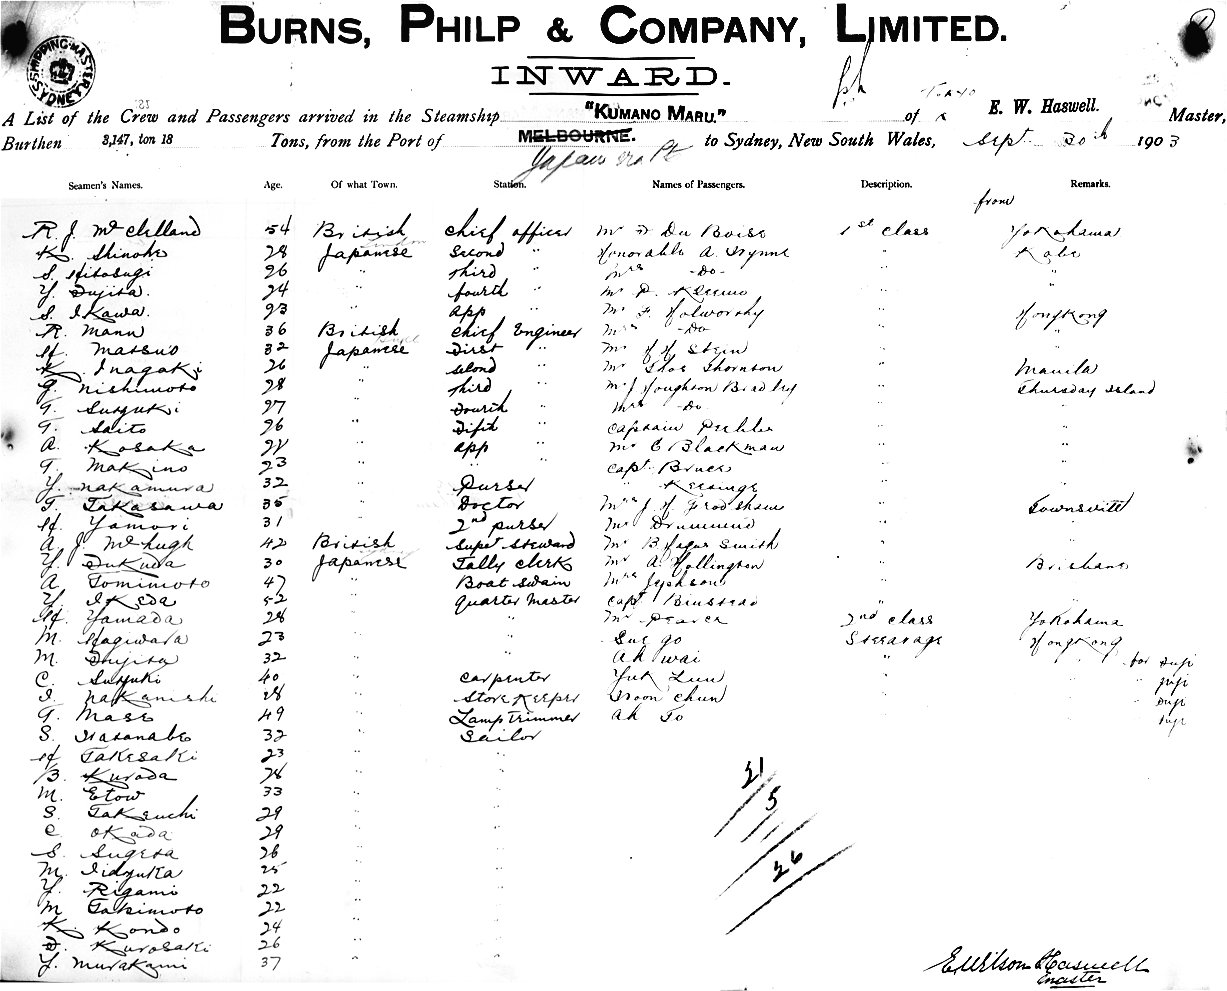 BURNS, PHILP & COMPANY, LIMITED.
INWARD.
SHIPPING MASTER SYDNEY
A List of the Crew and Passengers arrived in the Steamship "KUMANO MARU." of Tokyo E. W. Haswell. Master,
Burthen 3,147, ton 18 Tons, from the Port of MELBOURNE. to Sydney, New South Wales, Sept 30th 1903
Japan via
Seamen's Names. Age. Of what Town. Station. Names of Passengers. Description. Remarks.
from
R. J. McClelland 54 British Chief officer Mr Du Boise 1st class Yokohama
K. Shinohe 28 Japanese Second " Honorable A. Wynne " Kobe
S. Hitosugi 26 " third " Mrs Do " "
Y. Fujita. 24 " fourth " Mr " "
S. Ikawa. 23 " App " Mr F. Holworthy " HongKong
R. Mann 36 British Chief Engineer Mrs Do " "
H. Matsuo 32 Japanese First " Mr Stein " "
K. Inagaki 26 " Second " Mr Thos Thornton " Manila
G. Nishimoto 28 " third " Mr J Houghton Bradley " Thursday Island
T. Suzuki 27 " Fourth " Mrs Do " "
T. Saito 26 " Fifth " Captain " "
A. Kosaka 22 " App " Mr C Blackman " "
T. Makino 23 " " " Capt Bruce " "
Y. Nakamura 32 " Purser " "
T. Takasawa 35 " Doctor Mrs J. H. Frodsham " Townsville
H. Yamori 31 " 2nd purser Mr Drummond " "
A. J. McHugh 42 British Supt Steward Mr B. Fagus Smith " "
Y. Fukuda 30 Japanese Tally Clerk Mr A. Hollington " Brisbane
A. Tomimoto 47 " Boat swain Mrs Jephson " "
Y. Ikeda 52 " Quarter Master Capt Binstead " "
H. Yamada 28 " " Mr Pearce 2nd class Yokohama
M. Hagiwara 23 " " Sue go Steerage HongKong
M. Fujita 32 " " Ah Wai " " for Fiji
C. Suzuki 40 " Carpenter Yuk Lun " " Fiji
I. Nakanishi 28 " Store Keeper Noon Chun " " Fiji
T. Mase 49 " Lamp trimmer Ah To " " Fiji
S. Watanabe 32 " Sailor
H. Takesaki 23 " "
B. Kurada 28 " "
M. Etow 33 " "
S. Takeuchi 29 " "
C. Okada 29 " "
S. Sugeta 26 " "
M. Iidzuka 25 " "
Y. Rigami 22 " "
M. Takimoto 22 " "
K. Kondo 24 " "
Kurosaki 26 " "
Y. Murakami 37 " "
21
5
26
E Wilson Haswell
Master